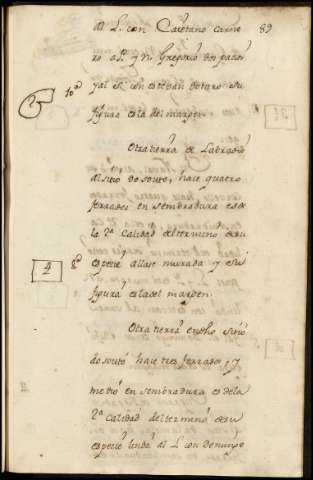 al L. con Caietano Carne
89
ro al P. y N. Gregorio dos pazos
10ª
y al S. con esteban de toro Su
figura es la del margen.
Otra tierra de Labradio
al sitio do souto, hace quatro
ferrados en sembradura es de
la 2ª Calidad del termino de su
4
8ª
especie allase murada y su
figura es la del margen.
Otra tierra en dho sitio
do souto hace tres ferrados y
medio en sembradura es de la
2ª Calidad del termino de su
especie linda al L. con